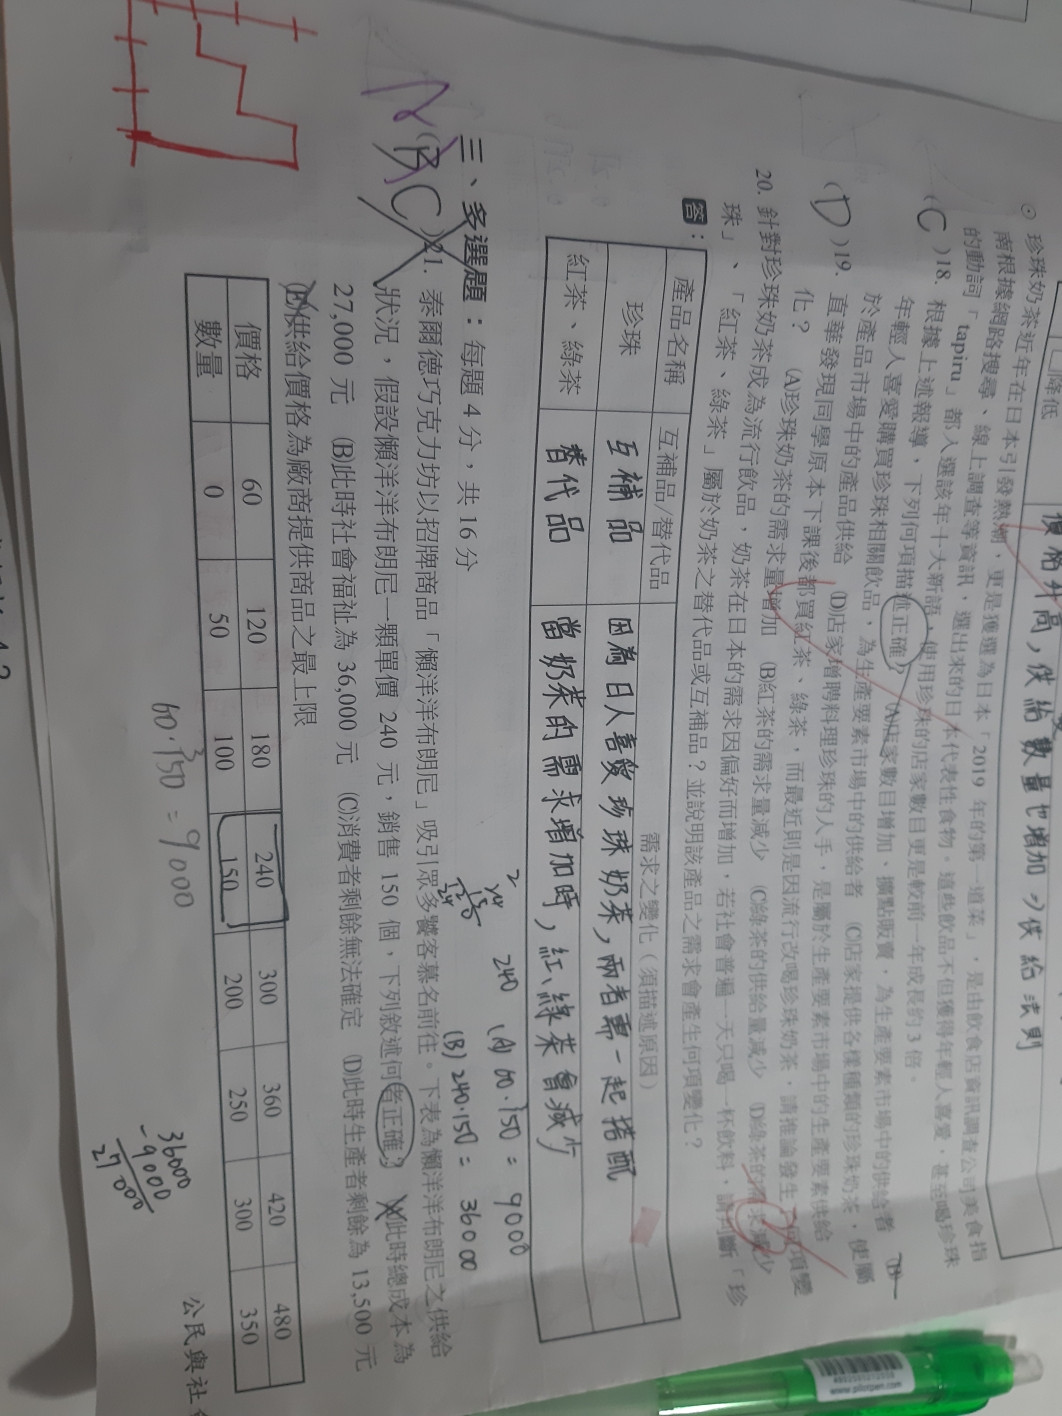 降低
價格升高，供給數量也增加 ⇒ 供給法則
⊙ 珍珠奶茶近年在日本引發熱潮，更是獲選為日本「2019 年的第一道菜」，是由飲食店資訊調查公司美食指
南根據網路搜尋、線上調查等資訊，選出來的日本代表性食物。這些飲品不但獲得年輕人喜愛，甚至喝珍珠
的動詞「tapiru」都入選該年十大新語，使用珍珠的店家數目更是較前一年成長約 3 倍。
(C)18. 根據上述報導，下列何項描述正確？ (A)店家數目增加、擴點販賣，為生產要素市場中的供給者 (B)
年輕人喜愛購買珍珠相關飲品，為生產要素市場中的供給者 (C)店家提供各樣種類的珍珠奶茶，便屬
於產品市場中的產品供給 (D)店家增聘料理珍珠的人手，是屬於生產要素市場中的生產要素供給
(D)19. 直華發現同學原本下課後都買紅茶、綠茶，而最近則是因流行改喝珍珠奶茶，請推論發生了何項變
化？ (A)珍珠奶茶的需求量增加 (B)紅茶的需求量減少 (C)綠茶的供給量減少 (D)綠茶的需求減少
20. 針對珍珠奶茶成為流行飲品，奶茶在日本的需求因偏好而增加，若社會普遍一天只喝一杯飲料，請判斷「珍
珠」、「紅茶、綠茶」屬於奶茶之替代品或互補品？並說明該產品之需求會產生何項變化？
答：
產品名稱 互補品/替代品 需求之變化（須描述原因）
珍珠 互補品 因為日人喜愛珍珠奶茶，兩者需一起搭配
紅茶、綠茶 替代品 當奶茶的需求增加時，紅、綠茶會減少
240 (A) 60·150 = 9000
(B) 240·150 = 36000
三、多選題：每題 4 分，共 16 分
(BC)21. 泰爾德巧克力坊以招牌商品「懶洋洋布朗尼」吸引眾多饕客慕名前往。下表為懶洋洋布朗尼之供給
狀況，假設懶洋洋布朗尼一顆單價 240 元，銷售 150 個，下列敘述何者正確？ (A)此時總成本為
27,000 元 (B)此時社會福祉為 36,000 元 (C)消費者剩餘無法確定 (D)此時生產者剩餘為 13,500 元
(E)供給價格為廠商提供商品之最上限
價格 60 120 180 240 300 360 420 480
數量 0 50 100 150 200 250 300 350
60·150 = 9000
36000
-9000
27000
公民與社